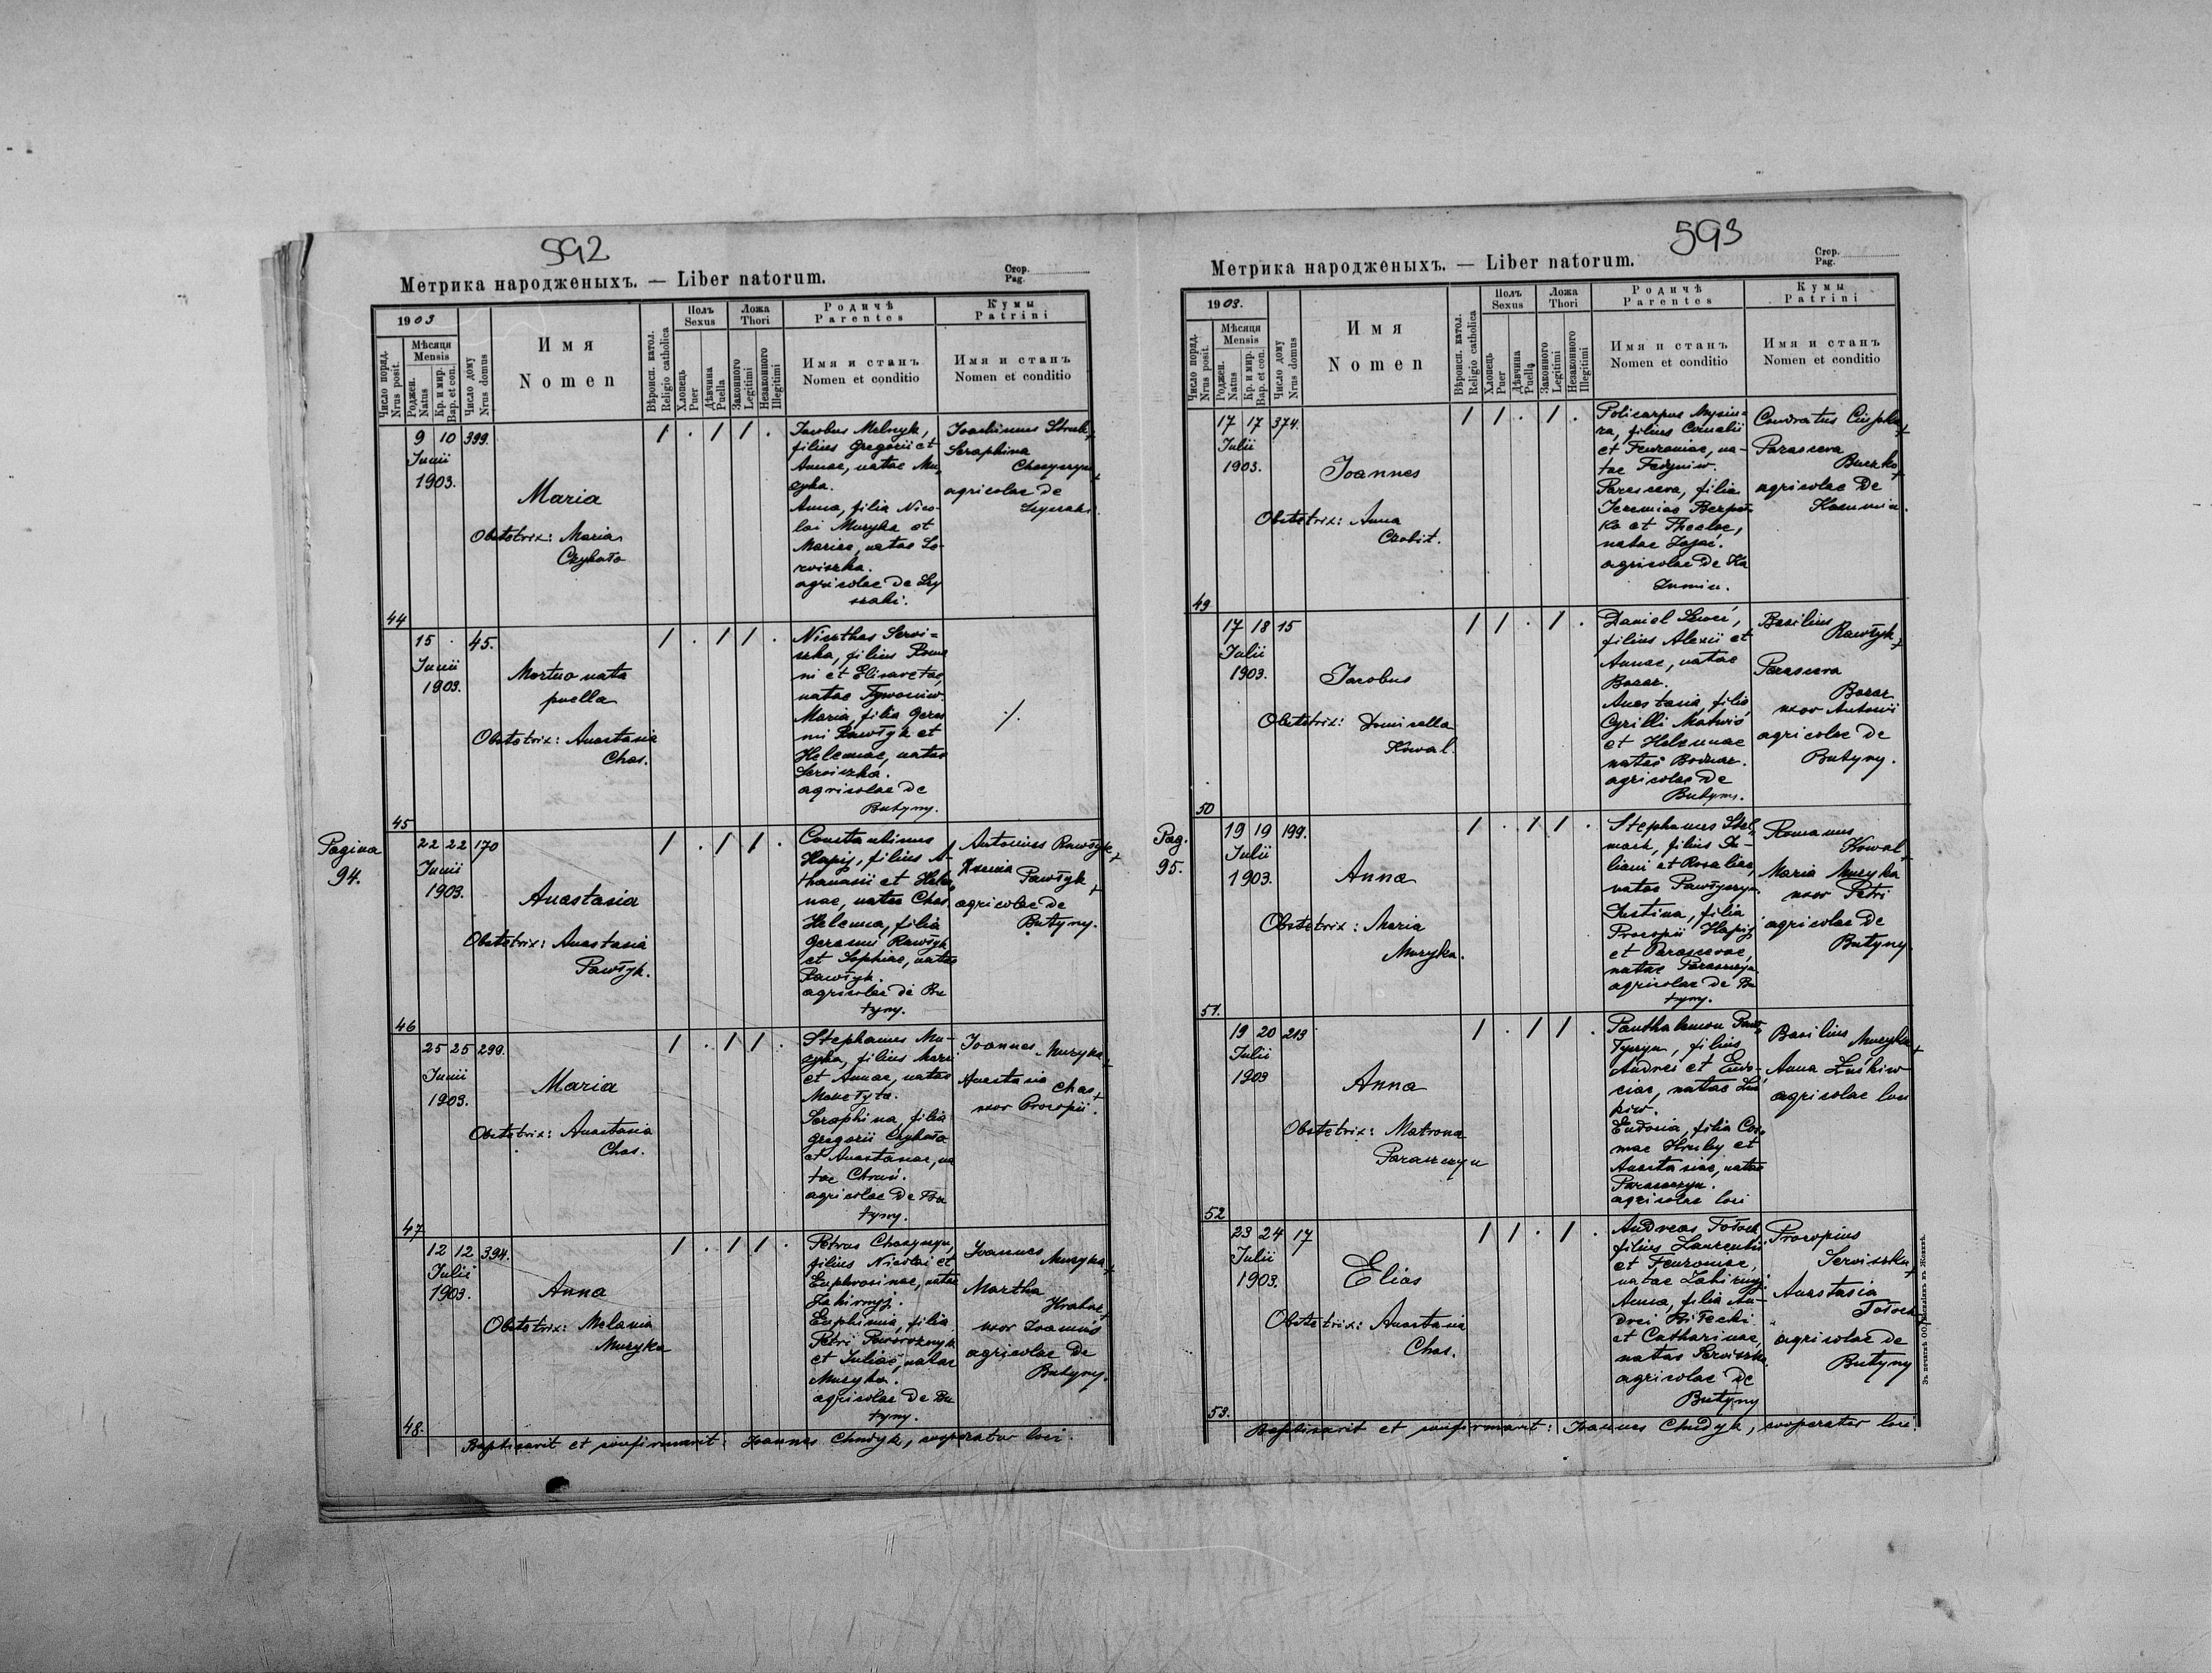 592
Метрика народженыхъ. — Liber natorum.
Стор.
Pag.
1903
Число поряд.
Nrus posit.
Мѣсяця
Mensis
Роджен.
Natus
Кр. и мир.
Bap. et con.
Число дому
Nrus domus
Имя
Nomen
Вѣроисп. катол.
Religio catholica
Полъ
Sexus
Хлопець
Puer
Дѣвчина
Puella
Ложа
Thori
Законного
Legitimi
Незаконного
Illegitimi
Родичѣ
Parentes
Имя и станъ
Nomen et conditio
Кумы
Patrini
Имя и станъ
Nomen et conditio
44
9 10 399.
Junii
1903.
Maria
Obstetrix: Maria
Czykało
/ . / / .
Jacobus Melnyk,
filius Gregorii et
Annae, natae Mu
zyka.
Anna, filia Nico-
lai Muzyka et
Mariae, natae Se-
rwiszka.
agricolae de
Joachimus
Seraphina
agricolae de
45
15 . 45.
Junii
1903.
Mortuo nata
puella
Obstetrix: Anastasia
Chas.
/ . / / .
Servi=
szka, filius Roma
ni et Elisavetae,
natae
Maria, filia Gera
mi Pawłyk et
Helennae, natae
Serviszka.
agricolae de
Butyny.
./.
Pagina
94.
46
22 22 170
Junii
1903.
Anastasia
Obstetrix: Anastasia
Pawłyk.
/ . / / .
Constantinus
Hapij, filius A-
thanasii et Hele
nae, natae Chas.
Helenna, filia
Pawłyk
et Sophiae, natae
Pawłyk.
agricolae de Bu
tyny.
Antonius Pawłyk +
Xenia Pawłyk +
agricolae de
Butyny.
47
25 25 299.
Junii
1903.
Maria
Obstetrix: Anastasia
Chas.
/ . / / .
Stephanus Mu-
zyka, filius Marci
et Annae, natae
Seraphina, filia
Gregorii Czykało
et Anastasiae, na
tae
agricolae de Bu
tyny.
Joannes Muzyka +
Anastasia Chas +
uxor Procopii.
48.
12 12 394.
Julii
1903.
Anna
Obstetrix: Melania
Muzyka
/ . / / .
Petrus
filius Nicolai et
Euphrosinae, natae
Zakirnyj.
Euphimia, filia
Petri Poworoznyk
et Juliae, natae
Muzyka.
agricolae de Bu
tyny.
Joannes
Muzyka +
Martha
Hrabar +
uxor Joannis
agricolae de
Butyny.
Baptisavit et confirmavit: Joannes Chudyk, cooperator loci.
593
Метрика народженыхъ. — Liber natorum.
Стор.
Pag.
1903.
Число поряд.
Nrus posit.
Мѣсяця
Mensis
Роджен.
Natus
Кр. и мир.
Bap. et con.
Число дому
Nrus domus
Имя
Nomen
Вѣроисп. катол.
Religio catholica
Полъ
Sexus
Хлопець
Puer
Дѣвчина
Puella
Ложа
Thori
Законного
Legitimi
Незаконного
Illegitimi
Родичѣ
Parentes
Имя и станъ
Nomen et conditio
Кумы
Patrini
Имя и станъ
Nomen et conditio
49
17 17 374.
Julii
1903.
Joannes
Obstetrix: Anna
Czobit.
/ / . / .
Policarpus
filius Cornelii
et Fevroniae, na-
tae Fedyniw.
Parasceva, filia
Jeremiae
et Theclae,
natae Zając.
agricolae de Ka
zumin.
Condratus
Parasceva
Buczko +
agricolae de
Kazumin.
50
17 18 15
Julii
1903.
Jacobus
Obstetrix: Domicella
Kowal.
/ / . / .
Daniel
filius Alexii et
Annae, natae
Bazar.
Anastasia, filia
Cyrilli
et Helennae
natae Bodnar.
agricolae de
Butyny.
Basilius
Pawłyk +
Parasceva
Bazar
uxor Antonii
agricolae de
Butyny.
Pag.
95.
51.
19 19 199.
Julii
1903.
Anna
Obstetrix: Maria
Muzyka.
/ . / / .
Stephanus Stel
mach, filius Ju-
liani et Rosaliae,
natae
Justina, filia
Procopii Hapij
et Parascevae,
natae Paraszczyn
agricolae de Bu
tyny.
Romanus
Kowal +
Maria Muzyka
uxor Petri
agricolae de
Butyny.
52
19 20 213
Julii
1903
Anna
Obstetrix: Matrona
Paraszczyn
/ . / / .
Panthalemon
filius
Andrei et Eudo-
ciae, natae Luś
kiw.
Eudocia, filia Cos
mae Hruby et
Anastasiae, natae
Paraszczyn.
agricolae loci
Basilius Muzyka +
Anna Luśkiw
agricolae loci
53.
23 24 17
Julii
1903.
Elias
Obstetrix: Anastasia
Chas.
/ / . / .
Andreas Tołoch,
filius Laurentii
et Fevroniae,
natae Zakirnyj.
Anna, filia An-
drei
et Catharinae,
natae Serviszka
agricolae de
Butyny
Procopius
Serviszka +
Anastasia
Tołoch
agricolae de
Butyny
Baptisavit et confirmavit: Joannes Chudyk, cooperator loci.